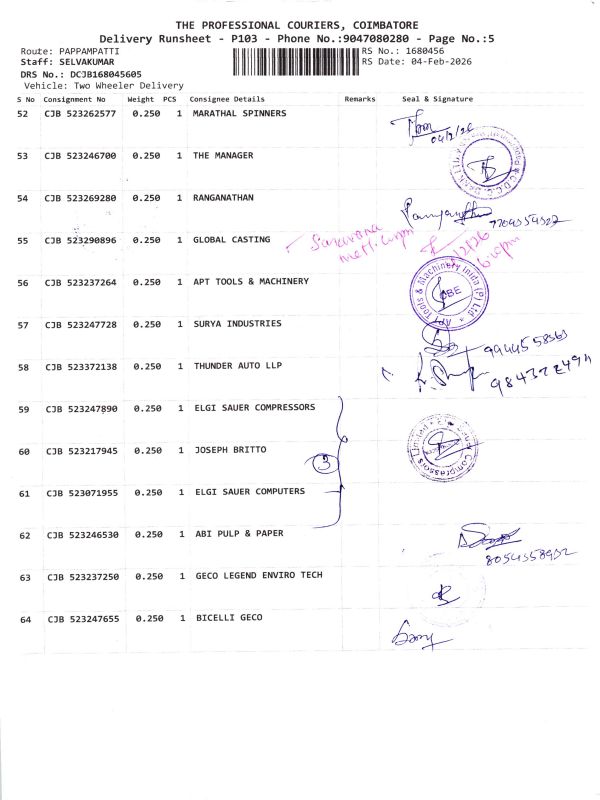 THE PROFESSIONAL COURIERS, COIMBATORE
Delivery Runsheet - P103 - Phone No.:9047080280 - Page No.:5
Route: PAPPAMPATTI RS No.: 1680456
Staff: SELVAKUMAR RS Date: 04-Feb-2026
DRS No.: DCJB168045605
Vehicle: Two Wheeler Delivery
S No Consignment No Weight PCS Consignee Details Remarks Seal & Signature
52 CJB 523262577 0.250 1 MARATHAL SPINNERS
53 CJB 523246700 0.250 1 THE MANAGER
54 CJB 523269280 0.250 1 RANGANATHAN
55 CJB 523290896 0.250 1 GLOBAL CASTING
56 CJB 523237264 0.250 1 APT TOOLS & MACHINERY
Tools & Machinery India (P) Ltd
57 CJB 523247728 0.250 1 SURYA INDUSTRIES
58 CJB 523372138 0.250 1 THUNDER AUTO LLP
59 CJB 523247890 0.250 1 ELGI SAUER COMPRESSORS
Compressors Limited
60 CJB 523217945 0.250 1 JOSEPH BRITTO
3
61 CJB 523071955 0.250 1 ELGI SAUER COMPUTERS
62 CJB 523246530 0.250 1 ABI PULP & PAPER
63 CJB 523237250 0.250 1 GECO LEGEND ENVIRO TECH
64 CJB 523247655 0.250 1 BICELLI GECO